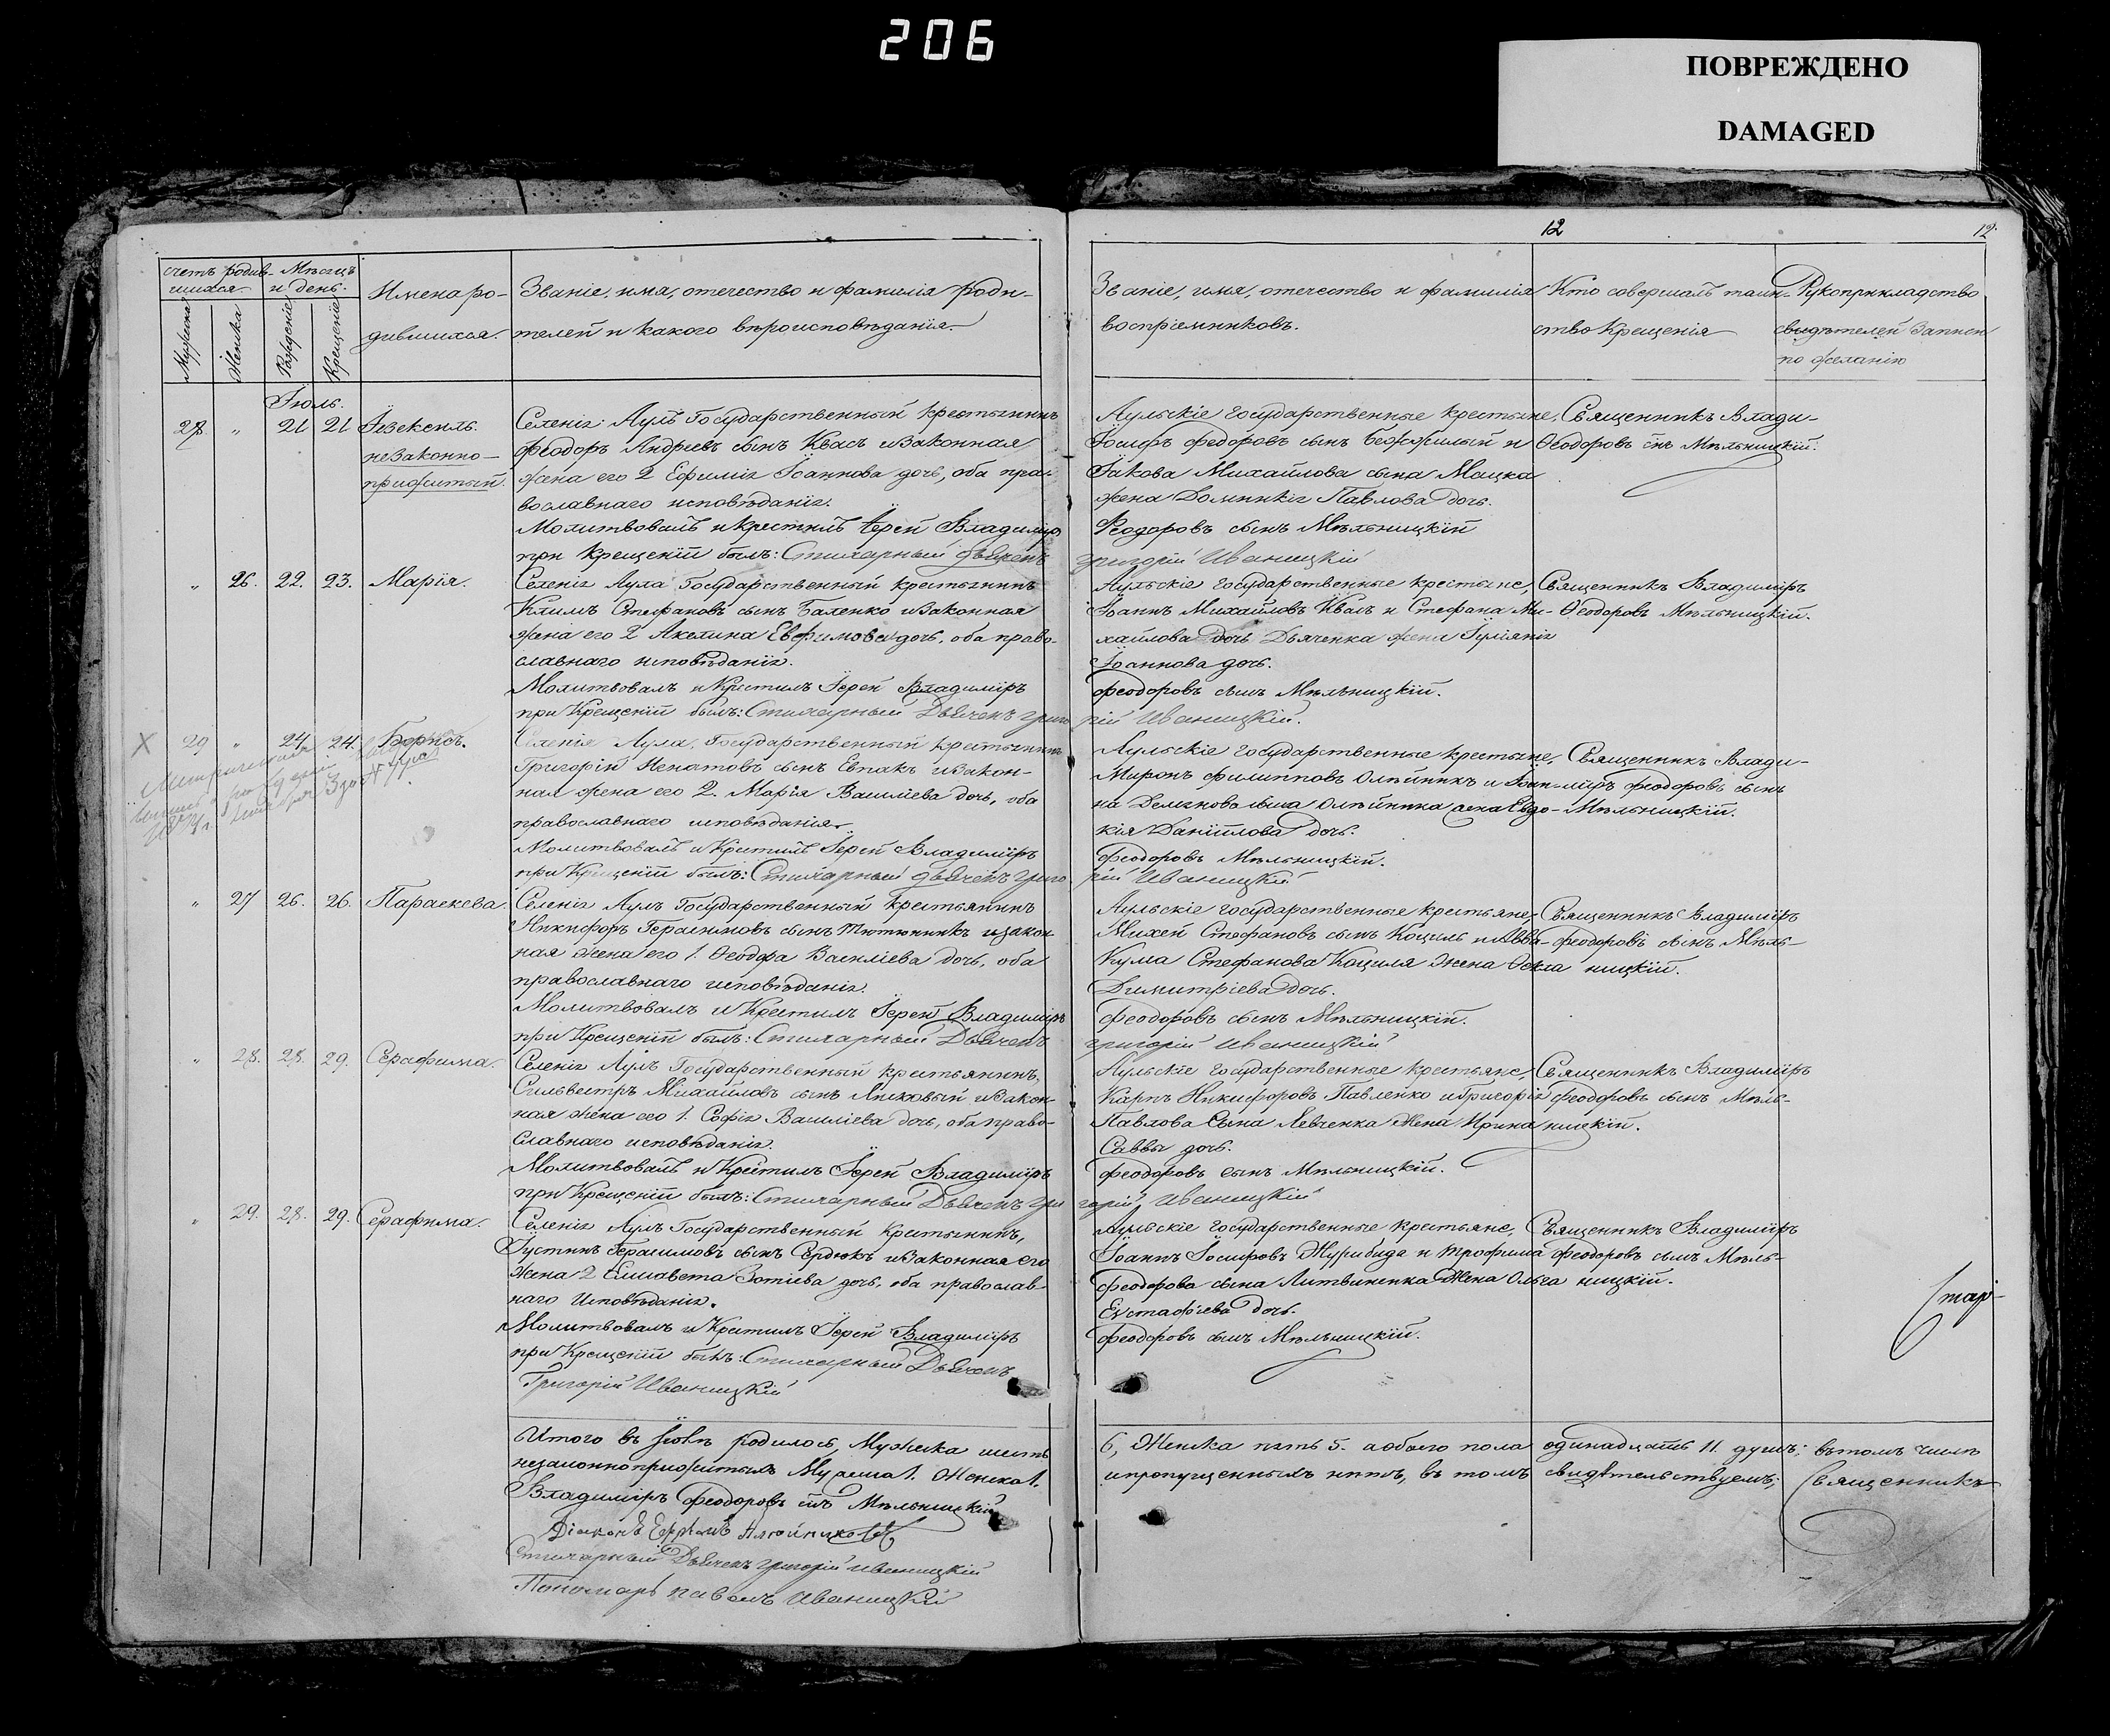 206
ПОВРЕЖДЕНО
DAMAGED
12
12
счетъ родив-
шихся.
Мѣсяцъ
и день.
Мужеска
Женска
Рожденіе
Крещеніе
Имена ро-
дившихся.
Званіе, имя, отечество и фамилія роди-
телей и какого вѣроисповѣданія.
Званіе, имя, отечество и фамилія
воспріемниковъ.
Кто совершалъ таин-
ство крещенія
Рукоприкладство
свидѣтелей записи
по желанію
Іюль.
28. " 21 21 Іезекіиль.
незаконно-
прижитый.
Селенія Аулъ Государственный крестьянинъ
Феодоръ Андреевъ сынъ Квасъ и законная
жена его 2 Ефимія Іоаннова дочь, оба пра-
вославнаго исповѣданія.
Молитвовалъ и крестилъ Іерей Владиміръ
при крещеніи былъ: Стихарный дьячекъ
Аульскіе государственные крестьяне,
Іосифъ Федоровъ сынъ и
Іакова Михайлова сына Мацка
жена Домникія Павлова дочь.
Феодоровъ сынъ Мѣльницкій
Григорій Иваницкій
Священникъ Влади-
Ѳеодоровъ снъ Мѣльницкій.
" 26. 22. 23. Марія.
Селенія Аула Государственный крестьянинъ
Климъ Стефановъ сынъ Баленко и законная
жена его 2 Акелина Евфимова дочь, оба право-
славнаго исповѣданія.
Молитвовалъ и Крестилъ Іерей Владиміръ
при Крещеніи былъ: Стихарный Дьячекъ Григо
Аульскіе государственные крестьяне,
Іоаннъ Михайловъ Квасъ и Стефана Ми-
хайлова дочь Дьяченка жена Іуліянія
Іоаннова дочь.
Феодоровъ сынъ Мѣльницкій.
рій Иваницкій.
Священникъ Владиміръ
Ѳеодоровъ Мѣльницкій.
X 29 " 24 24. Борисъ.
Селенія Аула, Государственный крестьянинъ
Григорій Игнатовъ сынъ Евпакъ и закон-
ная жена его 2. Марія Василіева дочь, оба
православнаго исповѣданія.
Молитвовалъ и Крестилъ Іерей Владиміръ
при Крещеніи былъ: Стихарный дьячекъ Григо
Аульскіе государственные крестьяне,
Миронъ Филипповъ Олѣйникъ и Іоан-
на Демянова сына Олѣйника жена Евдо-
кія Даніилова дочь.
Феодоровъ Мѣльницкій.
рій Иваницкій
Священникъ Влади-
міръ Феодоровъ сынъ
Мѣльницкій.
" 27 26. 26. Параскева.
Селенія Аулъ Государственный крестьянинъ
Никифоръ Герасимовъ сынъ Тютюнникъ и закон
ная жена его 1. Ѳеодора Василіева дочь, оба
православнаго исповѣданія.
Молитвовалъ и Крестилъ Іерей Владиміръ
при Крещеніи былъ: Стихарный Дьячекъ
Аульскіе государственные крестьяне,
Михей Стефановъ сынъ Коциль и Авва-
кума Стефанова Коциля жена Ѳекла
Димитріева дочь.
Феодоровъ сынъ Мѣльницкій.
Григорій Иваницкій
Священникъ Владиміръ
Феодоровъ сынъ Мѣль-
ницкій.
" 28. 28. 29. Серафима.
Селенія Аулъ Государственный крестьянинъ,
Сильвестръ Михайловъ сынъ и закон
ная жена его 1. Софія Василіева дочь, оба право-
славнаго исповѣданія.
Молитвовалъ и Крестилъ Іерей Владиміръ
при Крещеніи былъ: Стихарный Дьячекъ Гри
Аульскіе государственные крестьяне,
Карпъ Никифоровъ Павленко и Григорія
Павлова Сына Левченка жена Ирина
Саввы дочь.
Феодоровъ сынъ Мѣльницкій.
горій Иваницкій
Священникъ Владиміръ
Феодоровъ сынъ Мѣль-
ницкій.
" 29. 28. 29. Серафима.
Селенія Аулъ Государственный крестьянинъ,
Іустинъ Герасимовъ сынъ Сердюкъ и законная его
жена 2 Елисавета Зотіева дочь, оба православ-
наго Исповѣданія.
Молитвовалъ и Крестилъ Іерей Владиміръ
при Крещеніи былъ: Стихарный Дьячекъ
Григорій Иваницкій
Аульскіе государственные крестьяне,
Іоаннъ Іосифовъ Журибида и Трофима
Феодорова сына Литвиненка Жена Ольга
Евстафіева дочь.
Феодоровъ сынъ Мѣльницкій.
Священникъ Владиміръ
Феодоровъ сынъ Мѣль-
ницкій.
Итого въ Іюлѣ родилось, Мужеска шесть
6, Женска пять 5. а обоего пола одинадцать 11 душъ; въ томъ числѣ
незаконноприжитыхъ Мужеска 1. Женска 1.
и пропущенныхъ нѣтъ, въ томъ свидѣтельствуемъ; Священникъ
Владиміръ Феодоровъ снъ Мѣльницкій
Діаконъ
Стихарный Дьячекъ Григорій Иваницкій
Пономарь Павелъ Иваницкій